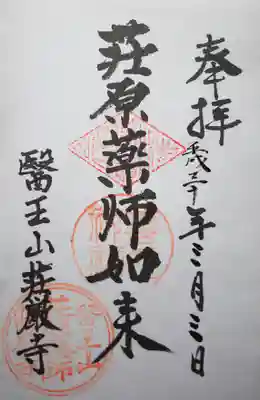 奉拝
平成三十年三月三日
荘原薬師如来
醫王山荘厳寺